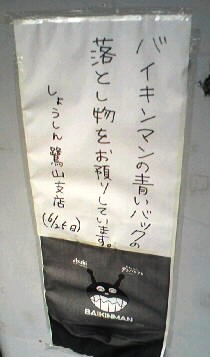 バイキンマンの青いバッグの
落とし物をお預りしています。
しょうしん 鷺山支店
(6/25日)
BAIKINMAN